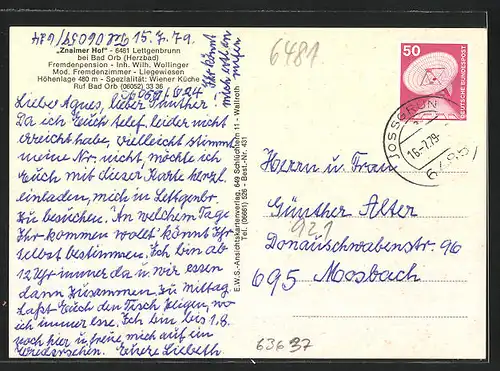 „Znaimer Hof“ - 6481 Lettgenbrunn
bei Bad Orb (Herzbad)
Fremdenpension - Inh. Wilh. Wollinger
Mod. Fremdenzimmer - Liegewiesen
Höhenlage 480 m - Spezialität: Wiener Küche
Ruf Bad Orb (06052) 33 36
15.7.79.
Ihr könnt
mich
anrufen
06059/624
Liebe Agnes, lieber Günther!
Da ich Euch telef. leider nicht
erreicht habe, vielleicht stimmt
meine Nr. nicht, möchte ich
Euch mit dieser Karte herzl.
einladen, mich in Lettgenbr.
zu besuchen. An welchem Tage
Ihr kommen wollt könnt Ihr
selbst bestimmen. Ich bin ab
12 Uhr immer da u. wir essen
dann zusammen. Zu Mittag
laßt Euch den Tisch zeigen, wo
ich immer esse. Ich bin bis 1.8.
noch hier u. freue mich auf ein
Wiedersehen. Eure Liesbeth
E.W.S.-Ansichtskartenverlag, 649 Schlüchtern 11 - Wallroth
Tel. (06661) 526 - Best.-Nr. 43
6481
50
DEUTSCHE BUNDESPOST
JOSSGRUND
16.-7.79
6485
Herrn u. Frau
Günther Alter
921
Donauschwabenstr. 96
695 Mosbach
63637